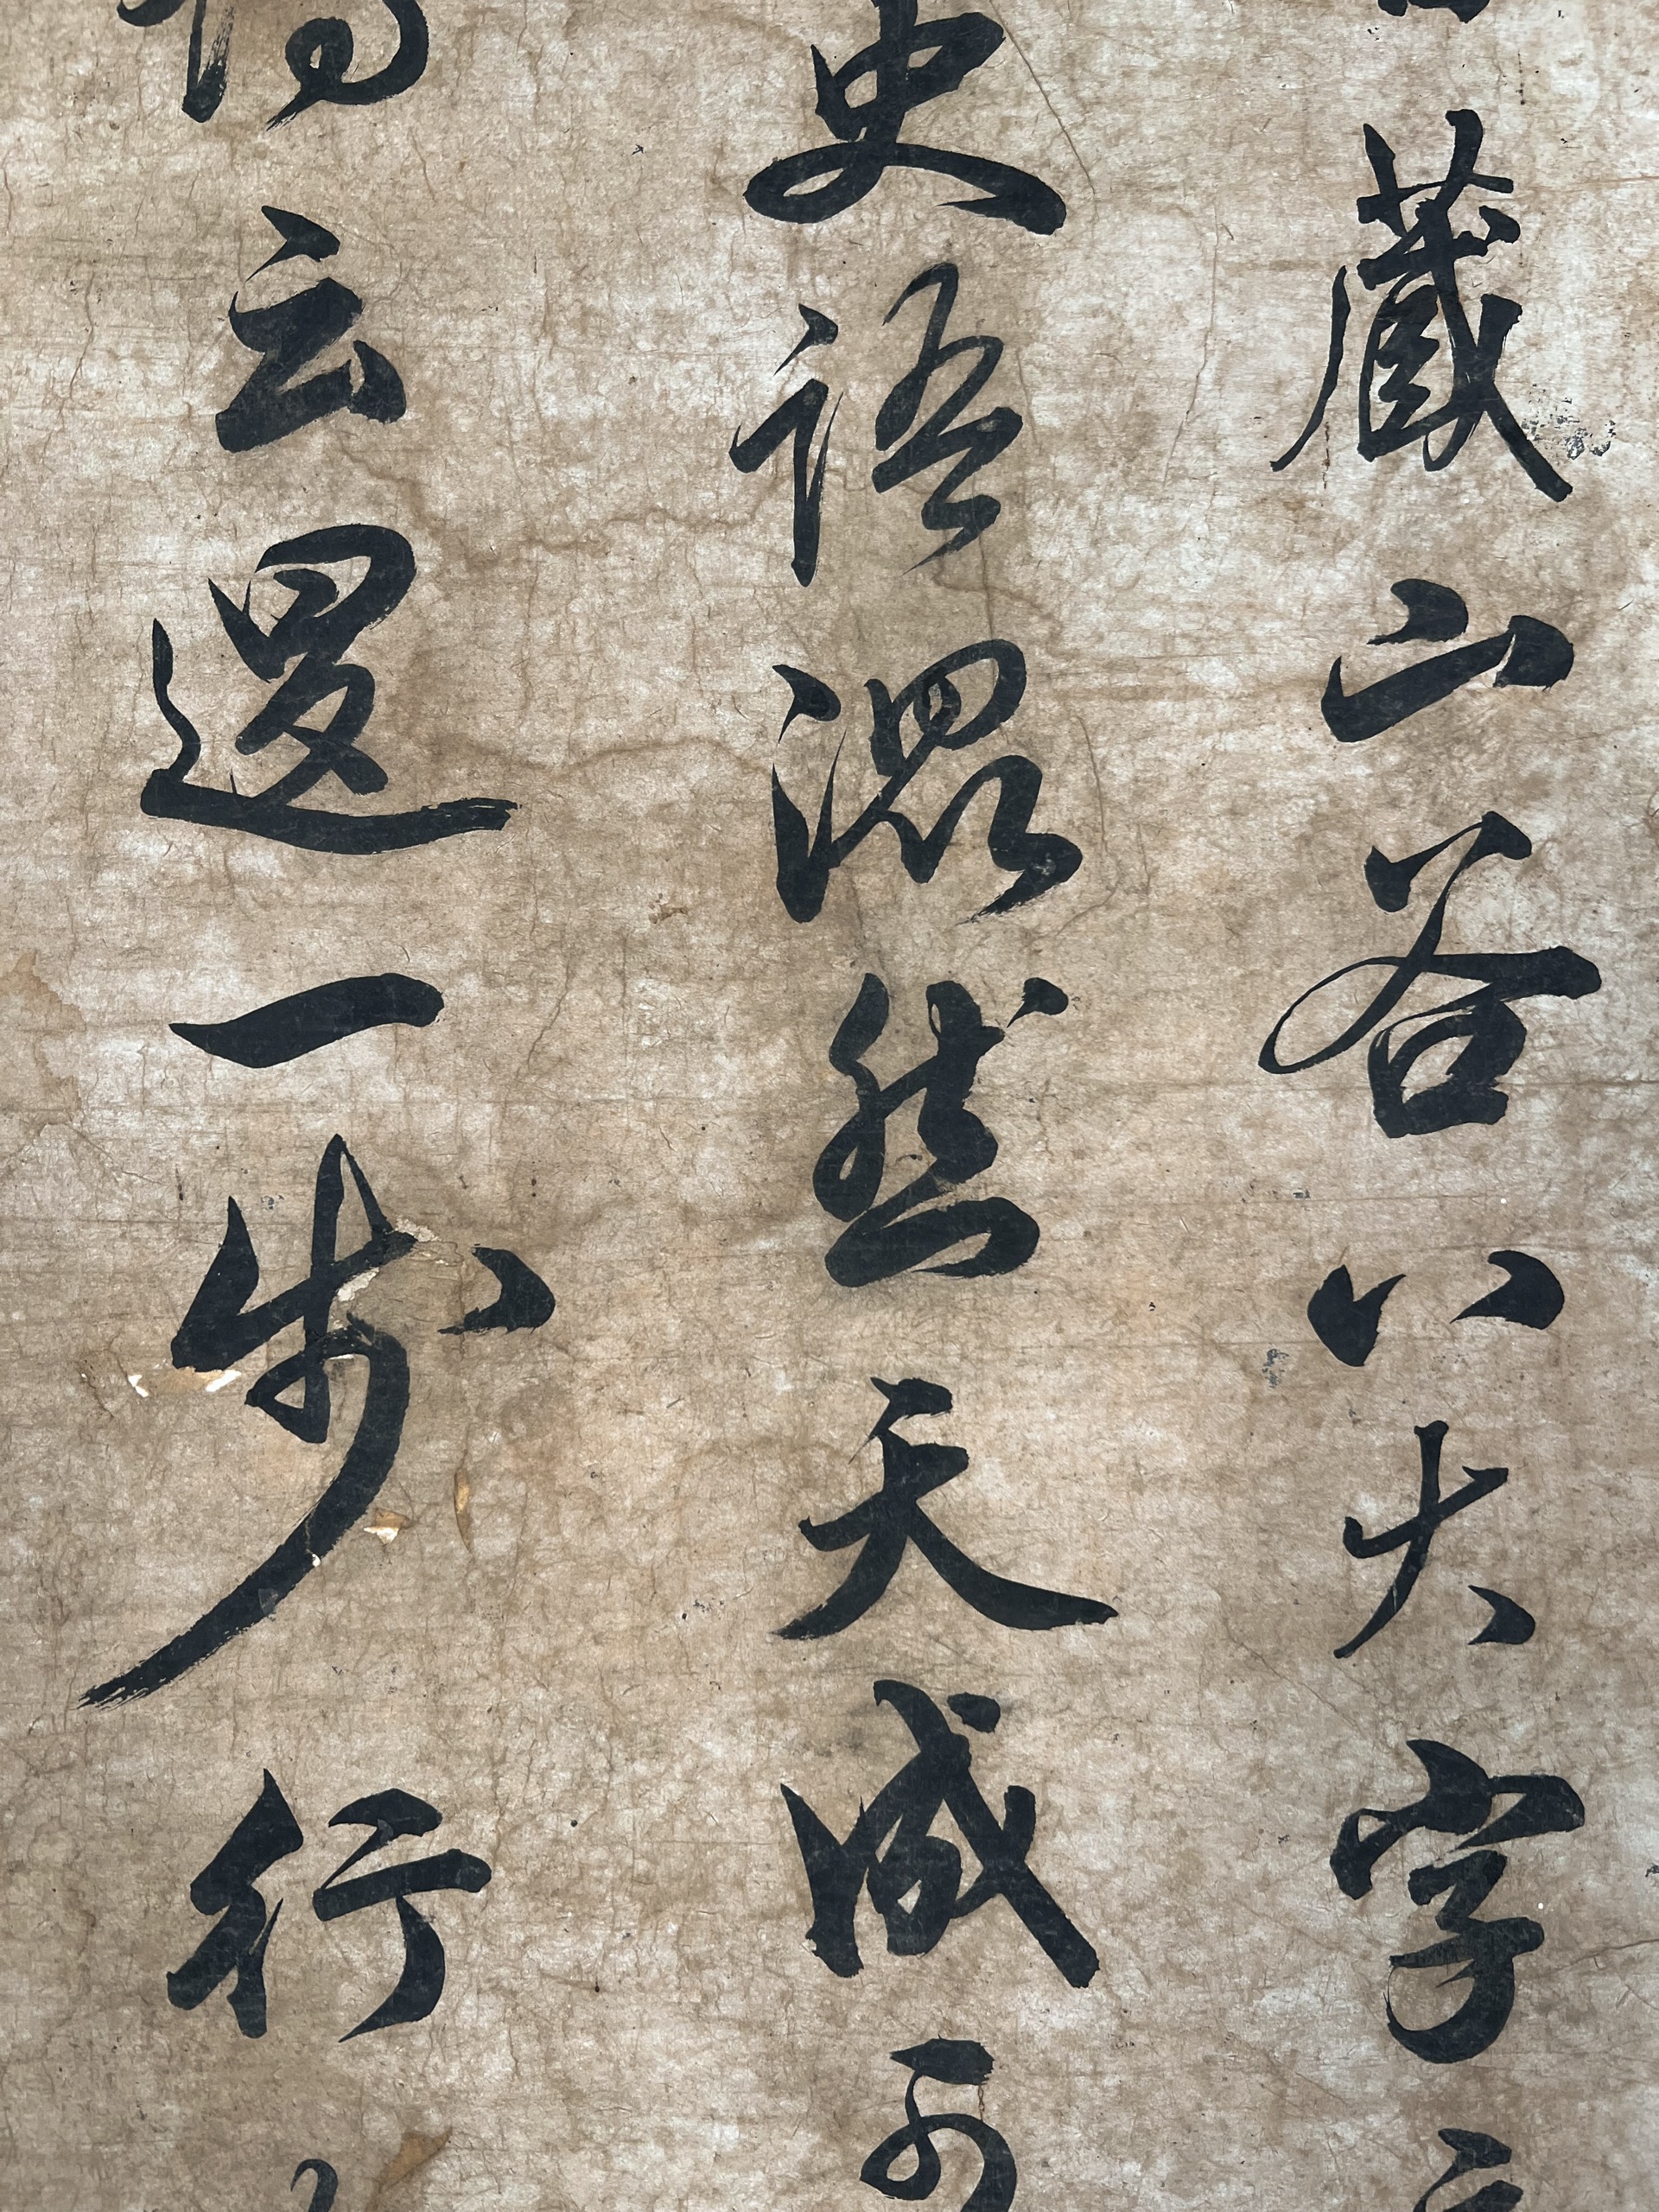 藏山谷八大字
史語混然天成
云還一步行